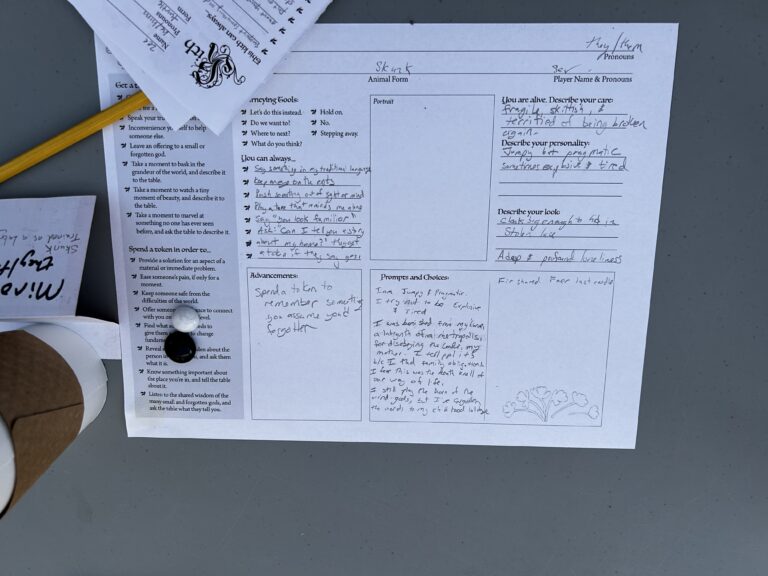 This kith can always:
Kith
Name
Pronouns
Form
they/them
Pronouns
Skunk
Animal Form
Player Name & Pronouns
Get a
Speak your tru
Inconvenience yourself to help
someone else.
Leave an offering to a small or
forgotten god.
Take a moment to bask in the
grandeur of the world, and describe
it to the table.
Take a moment to watch a tiny
moment of beauty, and describe it
to the table.
Take a moment to marvel at
something no one has ever seen
before, and ask the table to describe it.
Spend a token in order to...
Provide a solution for an aspect of a
material or immediate problem.
Ease someone's pain, if only for a
moment.
Keep someone safe from the
difficulties of the world.
Offer someone chance to connect
with you on level.
Find what needs to
give them change
fundamen
Reveal den about the
person in and ask them
what it is.
Know something important
about the place you're in, and tell the table
about it.
Listen to the shared wisdom of the
many small and forgotten gods, and
ask the table what they tell you.
rneying Tools:
Let's do this instead.
Do we want to?
Where to next?
What do you think?
Hold on.
No.
Stepping away.
You can always...
Say something in my traditional language
Keep away bath eats
Push something out of sight or mind
Play a tune that reminds me
Say "You look familiar"
Ask: "Can I tell you a story
about my home?" Thyost
a token if they say yes
Advancements:
Spend a token to
remember something
you assume you'd
forgotten
Portrait
You are alive. Describe your care:
fragile, skittish, &
terrified of being broken
again.
Describe your personality:
Jumpy but pragmatic
sometimes explosive & tired
Describe your look:
cloak big enough to hide in
Stolen
A deep & profound loneliness
Prompts and Choices:
I am Jumpy & Pragmatic.
I try not to be Explosive
& Tired
I was banished from my
a labyrinth of metropolis
for disobeying the leader, my
mother. I tell ppl it's
b/c I had family obligations
I fear this was the death knell of
our way of life.
I still play the horn of the
wind gods, but I've forgotten
the words to my childhood lullabye
Fir shared. Fear last candle
Skunk
Trained as a
they/th